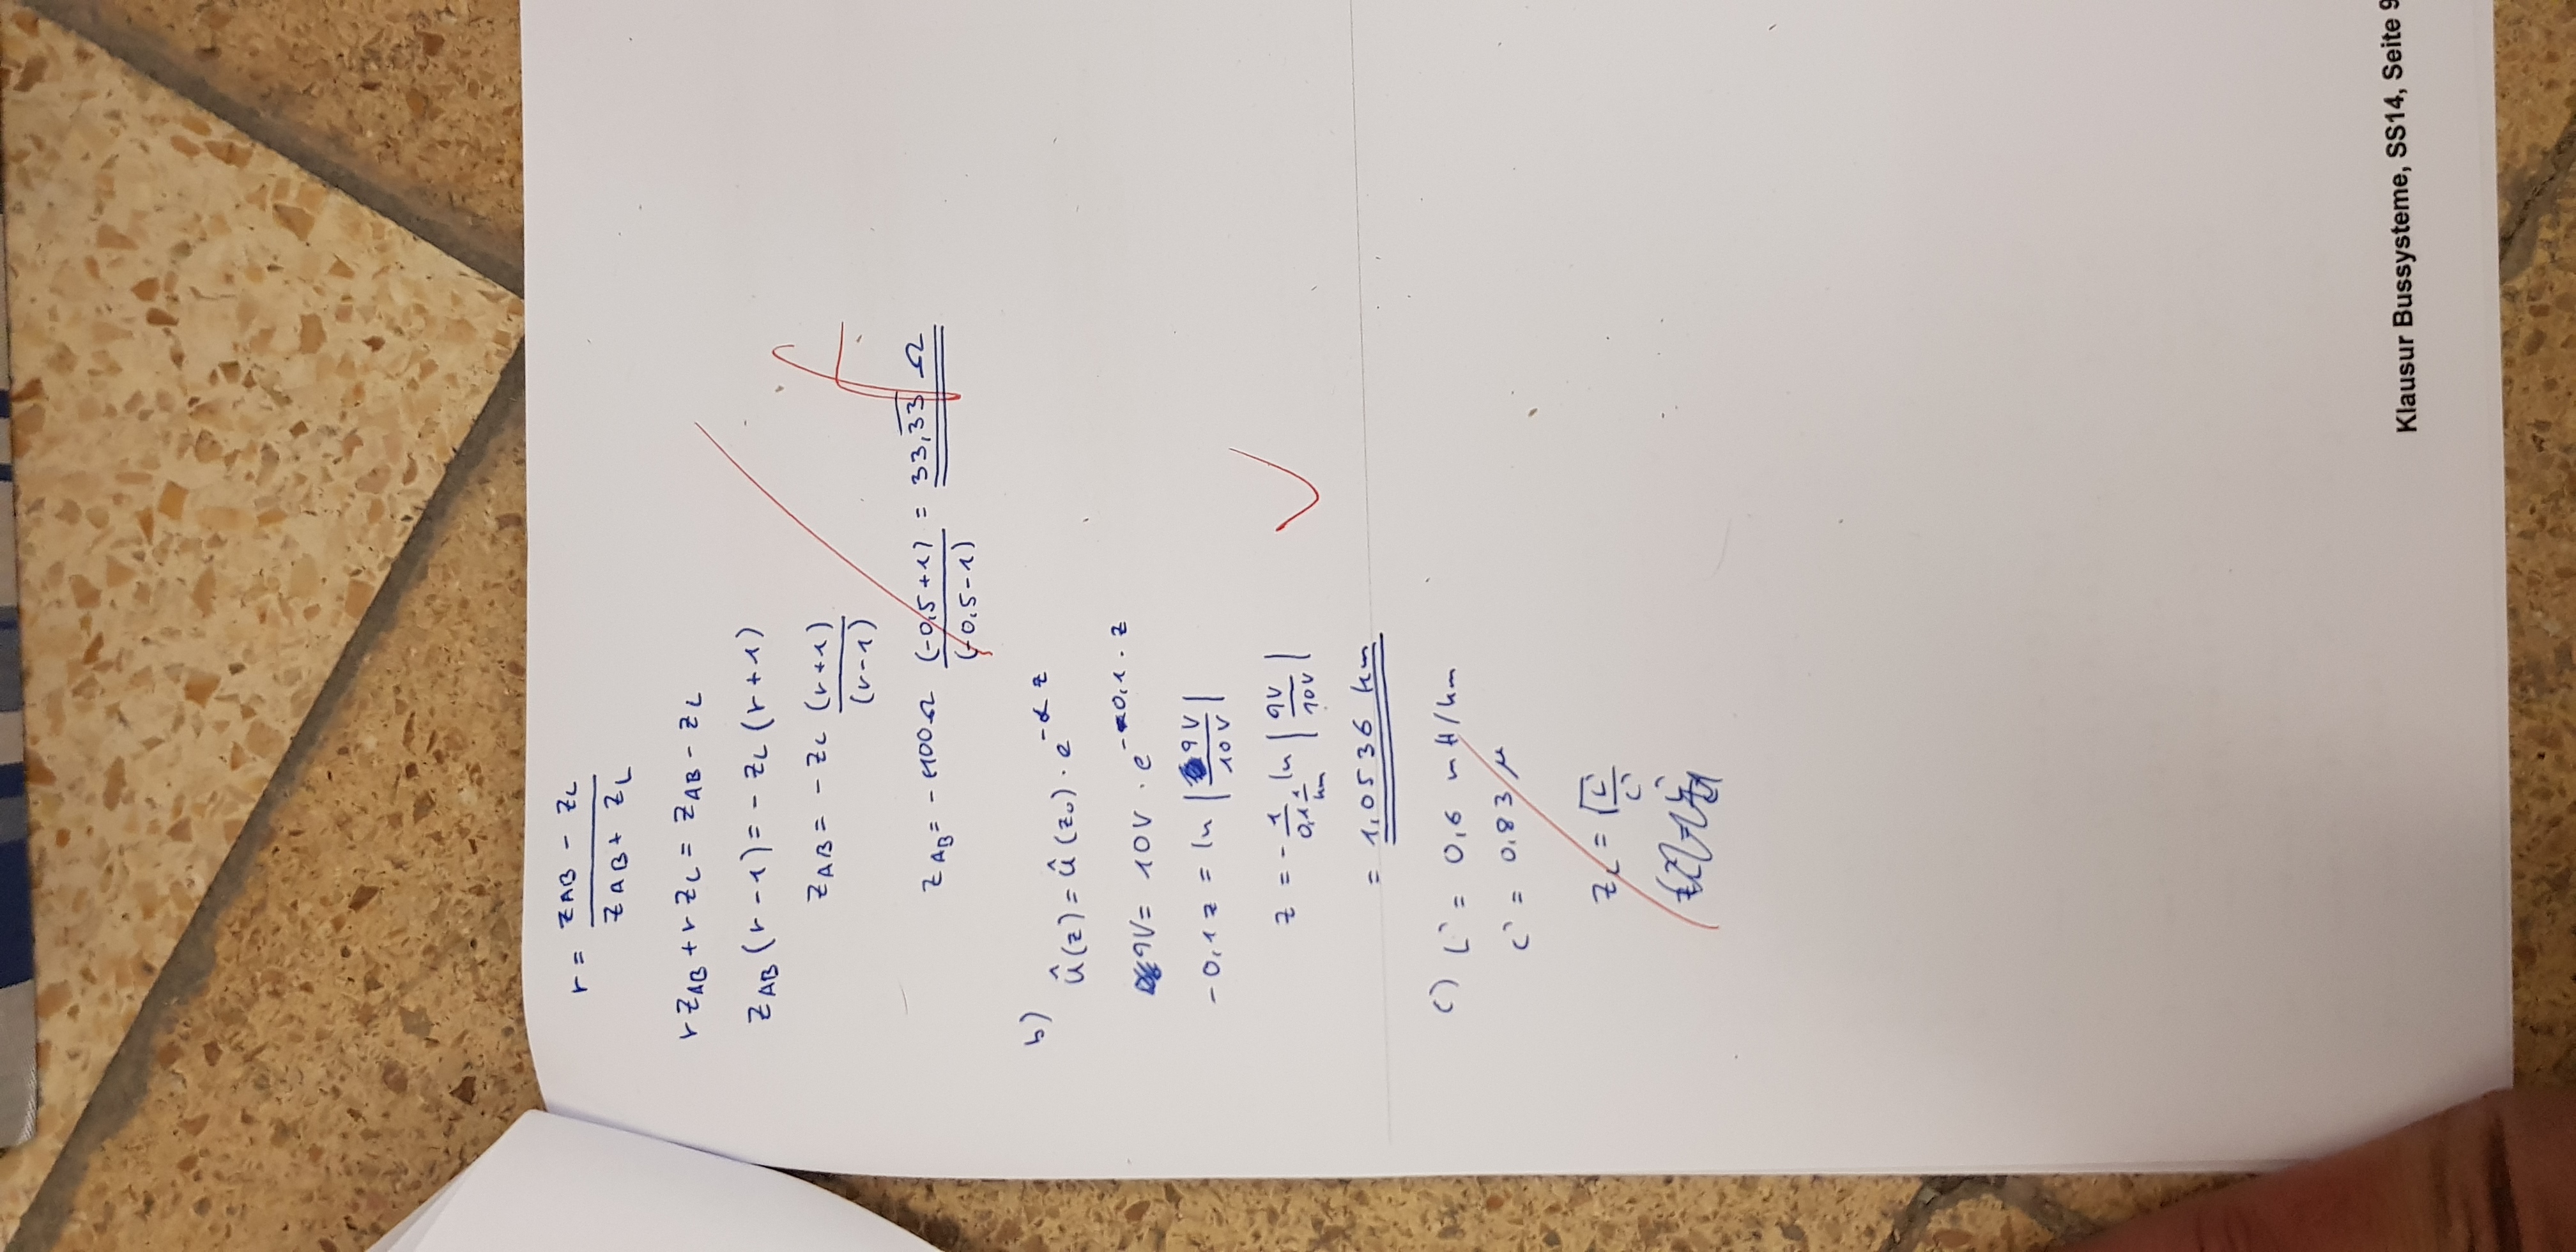 r = (Z_AB - Z_L) / (Z_AB + Z_L)
r Z_AB + r Z_L = Z_AB - Z_L
Z_AB (r - 1) = - Z_L (r + 1)
Z_AB = - Z_L (r + 1) / (r - 1)
Z_AB = - 100 Ω (-0,5 + 1) / (-0,5 - 1) = 33,3̅3̅ Ω
f
b)
û(z) = û(z₀) · e^(-α z)
9V = 10V · e^(-0,1 · z)
-0,1 z = ln |9V / 10V|
z = - 1 / (0,1 1/km) ln |9V / 10V|
= 1,0536 km
c) L' = 0,6 mH/km
C' = 0,83 μ
Z_L = √(L' / C')
Klausur Bussysteme, SS14, Seite 9